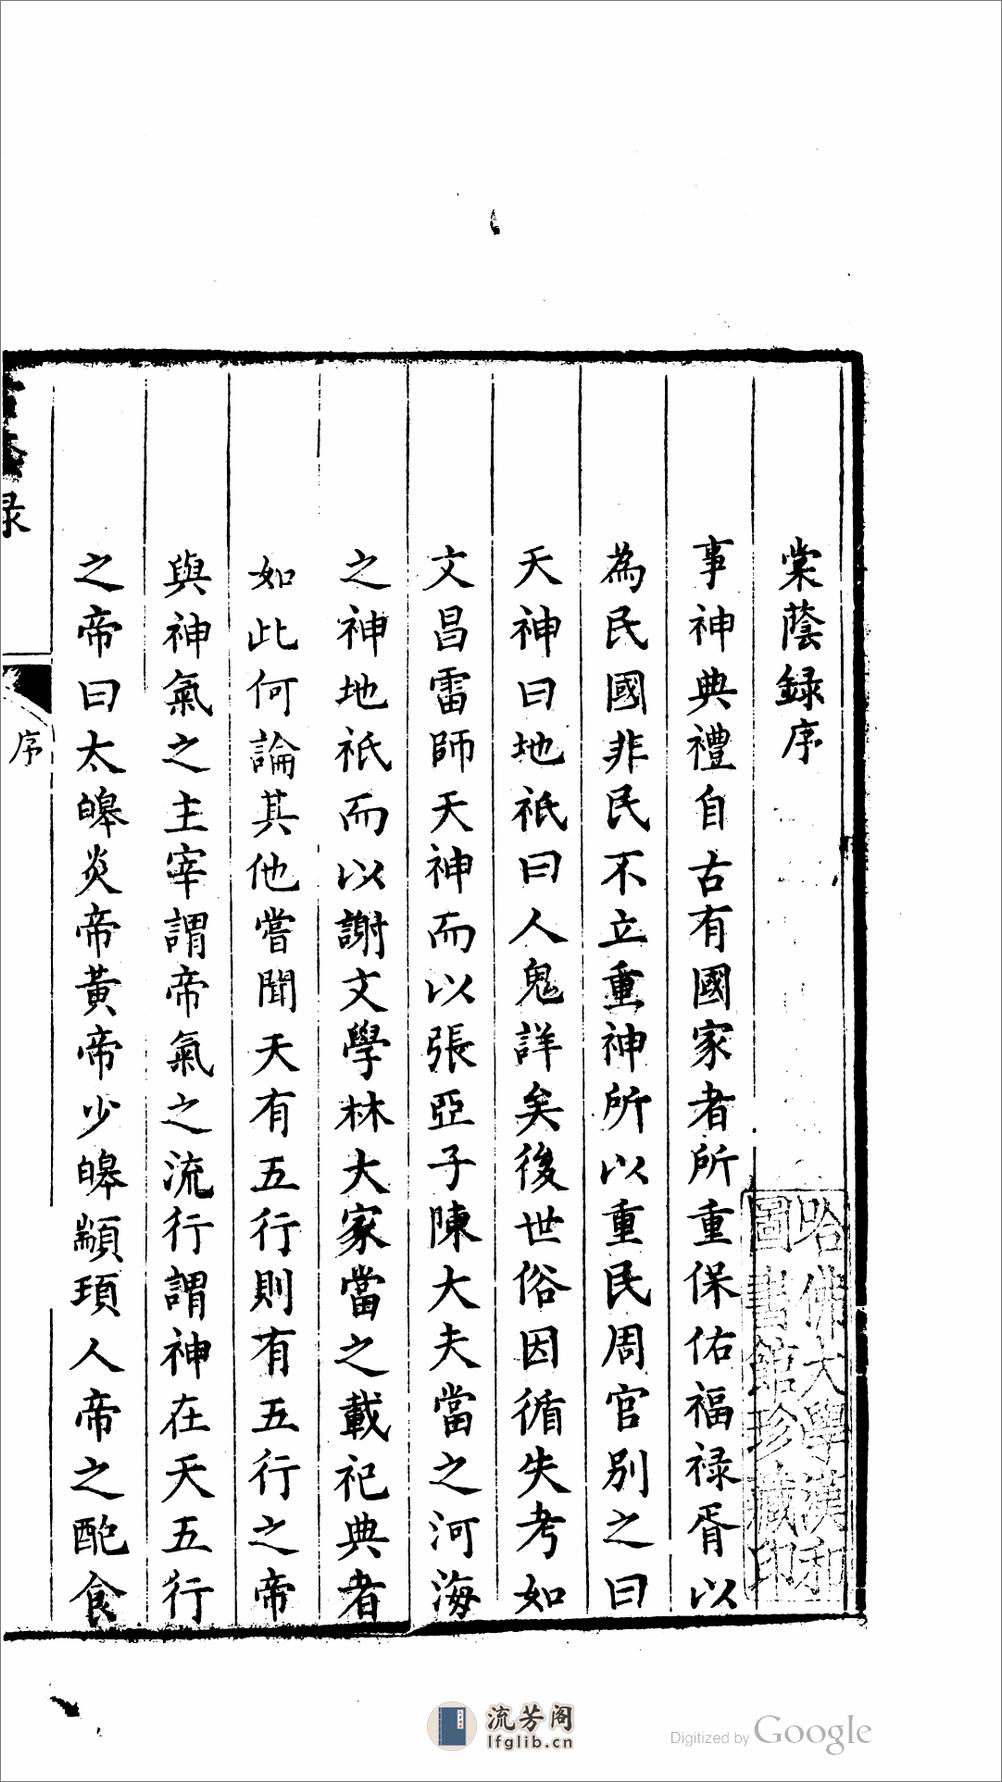 棠蔭録序
事神典禮自古有國家者所重保佑福禄胥以
為民國非民不立重神所以重民周官别之曰
天神曰地祇曰人鬼詳矣後世俗因循失考如
文昌雷師天神而以張亞子陳大夫當之河海
之神地祇而以謝文學林大家當之載祀典者
如此何論其他嘗聞天有五行則有五行之帝
與神氣之主宰謂帝氣之流行謂神在天五行
之帝曰太皞炎帝黃帝少皞顓頊人帝之配食
録
序
哈佛大學漢和
圖書館珍藏印
流芳阁
lfglib.cn
Digitized by Google